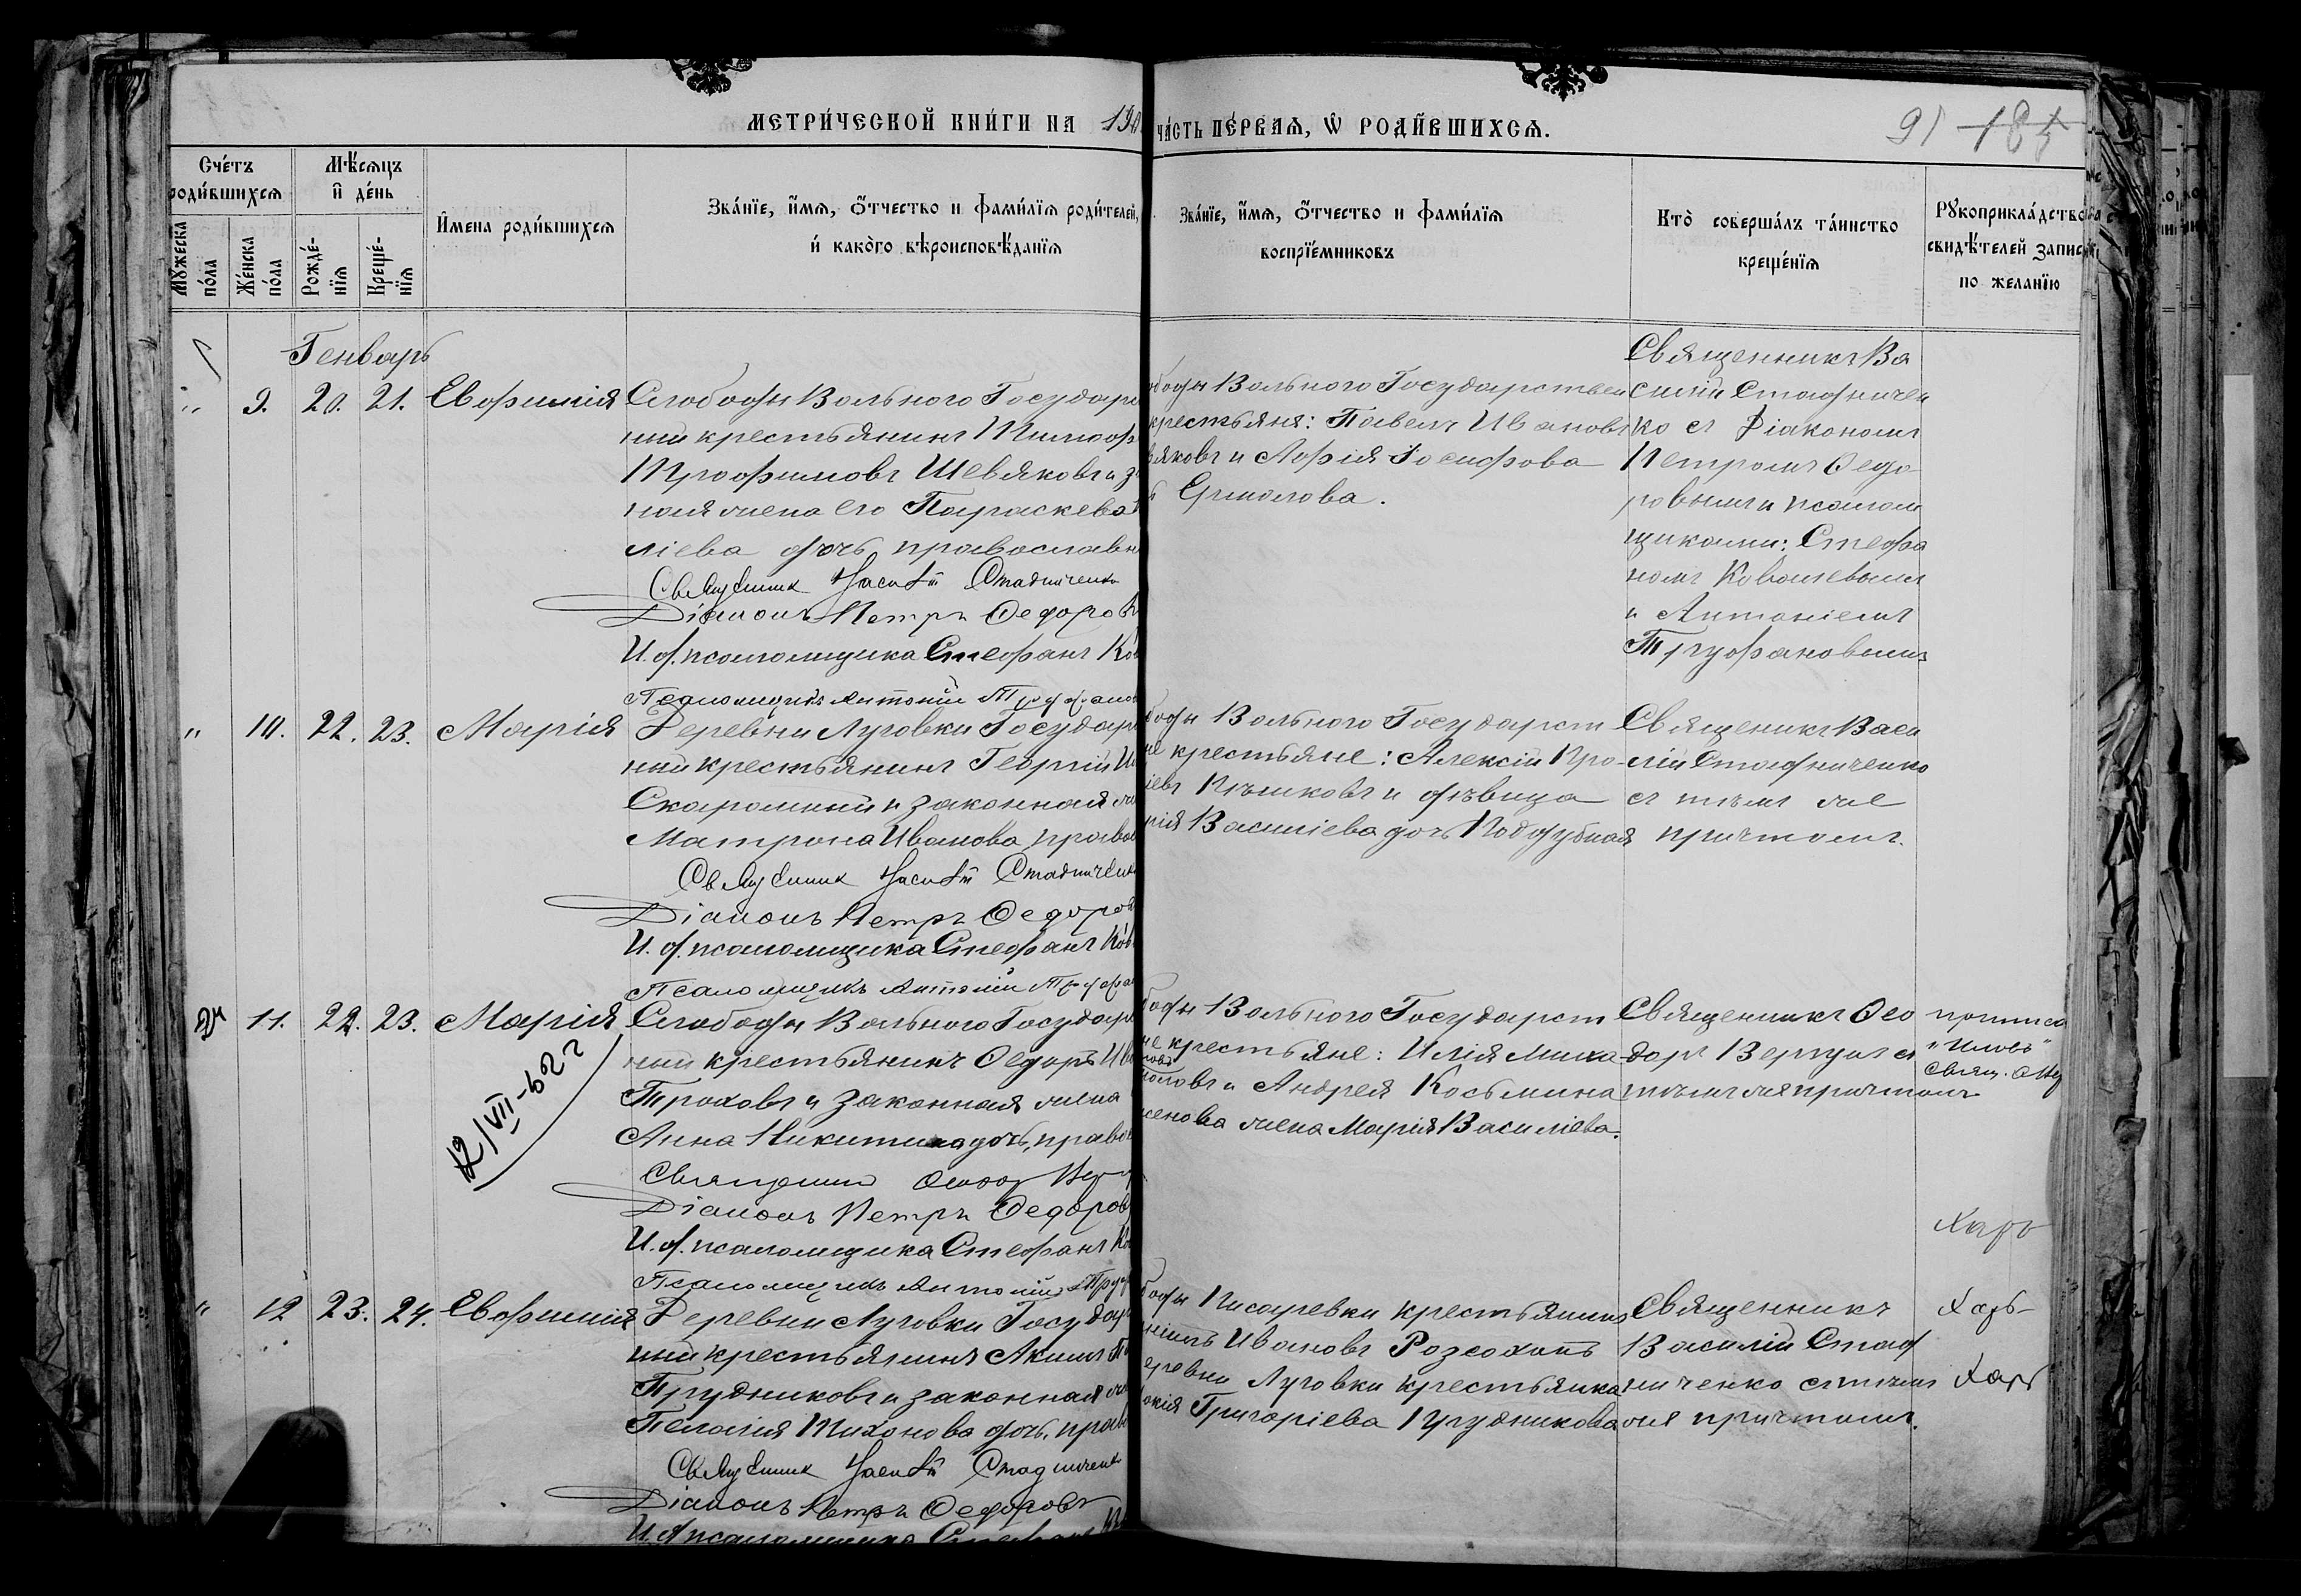 МЕТРИ́ЧЕСКОЙ КНИ́ГИ НА 190
ЧА́СТЬ ПЕ́РВАЯ, Ѡ РОДИ́ВШИХСЯ.
91 185
Сче́тъ роди́вшихся
Мѣ́сяцъ и де́нь
Имена роди́вшихся
Зва́нїе, и́мя, о́тчество и фами́лїя роди́телей,
и како́го вѣроисповѣ́данїя
Зва́нїе, и́мя, о́тчество и фами́лїя
воспрїе́мниковъ
Кто̀ соверша́лъ та́инство
креще́нїя
Рꙋкоприкла́дство
свидѣ́телей записи
по желанїю
Мꙋжеска по́ла
Же́нска по́ла
Рожде́нїя
Креще́нїя
Генварь
9. 20. 21. Евфимія
Слободы Вольного Государ
ный крестьянинъ Тимоф
Трофимовъ Шевяковъ и з
ная жена его Параскева
ліева дочь православн
Священник Василій Стадниченко
Діаконъ Петръ Федоров
И. д. псаломщика Стефанъ Ков
Псаломщикъ Антоній Труфанов
ободы Вольного Государствен
крестьяне: Павелъ Ивановъ
вяковъ и Марія Іосифова
Ермолова.
Священникъ Ва
силій Стадничен
ко съ Діакономъ
Петромъ Федо
ровымъ и псалом
щиками: Стефа
номъ Ковалевымъ
и Антоніемъ
Труфановымъ
" 10. 22. 23. Марія
Деревни Луговки Государ
ный крестьянинъ Георгій И
Скаромный и законная же
Матрона Иванова, право
Священник Василій Стадниченк
Діаконъ Петръ Федоров
И. д. псаломщика Стефанъ Ков
Псаломщикъ Антоній Труфан
боды Вольного Государст
не крестьяне: Алексій Про
іевъ и дѣвица
рія Василіева дочь Поддубная
Священикъ Васи
лій Стадниченко
съ тѣмъ же
причтомъ.
11. 22. 23. Марія
12/VII-62 г
Слободы Вольного Государ
ный крестьянинъ Федоръ Ив
Троховъ и законная жена
Анна Никитина дочь, право
Священник Феодор Вер
Діаконъ Петръ Федоров
И. д. псаломщика Стефанъ Ко
Псаломщикъ Антоній Труф
боды Вольного Государст
не крестьяне: Илія Миха
и Андрея Косьмина
сенова жена Марія Василіева.
Священникъ Фео
доръ съ
тѣмъ же причтомъ
приписа
Свящ.
Харь
" 12 23. 24. Евфимія
Деревни Луговки Государ
ный крестьянинъ Акимъ
Прудниковъ и законная же
Пелагія Тихонова дочь, прав
Священник Василій Стадниченк
Діаконъ Петръ Федоровъ
И. д. псаломщика Стефанъ
боды Писаревки крестьянинъ
Ивановъ
еревни Луговки крестьянка
Григоріева Прудникова
Священникъ
Василій Стад
ниченко съ тѣмъ
же причтомъ.
Харь
Харь